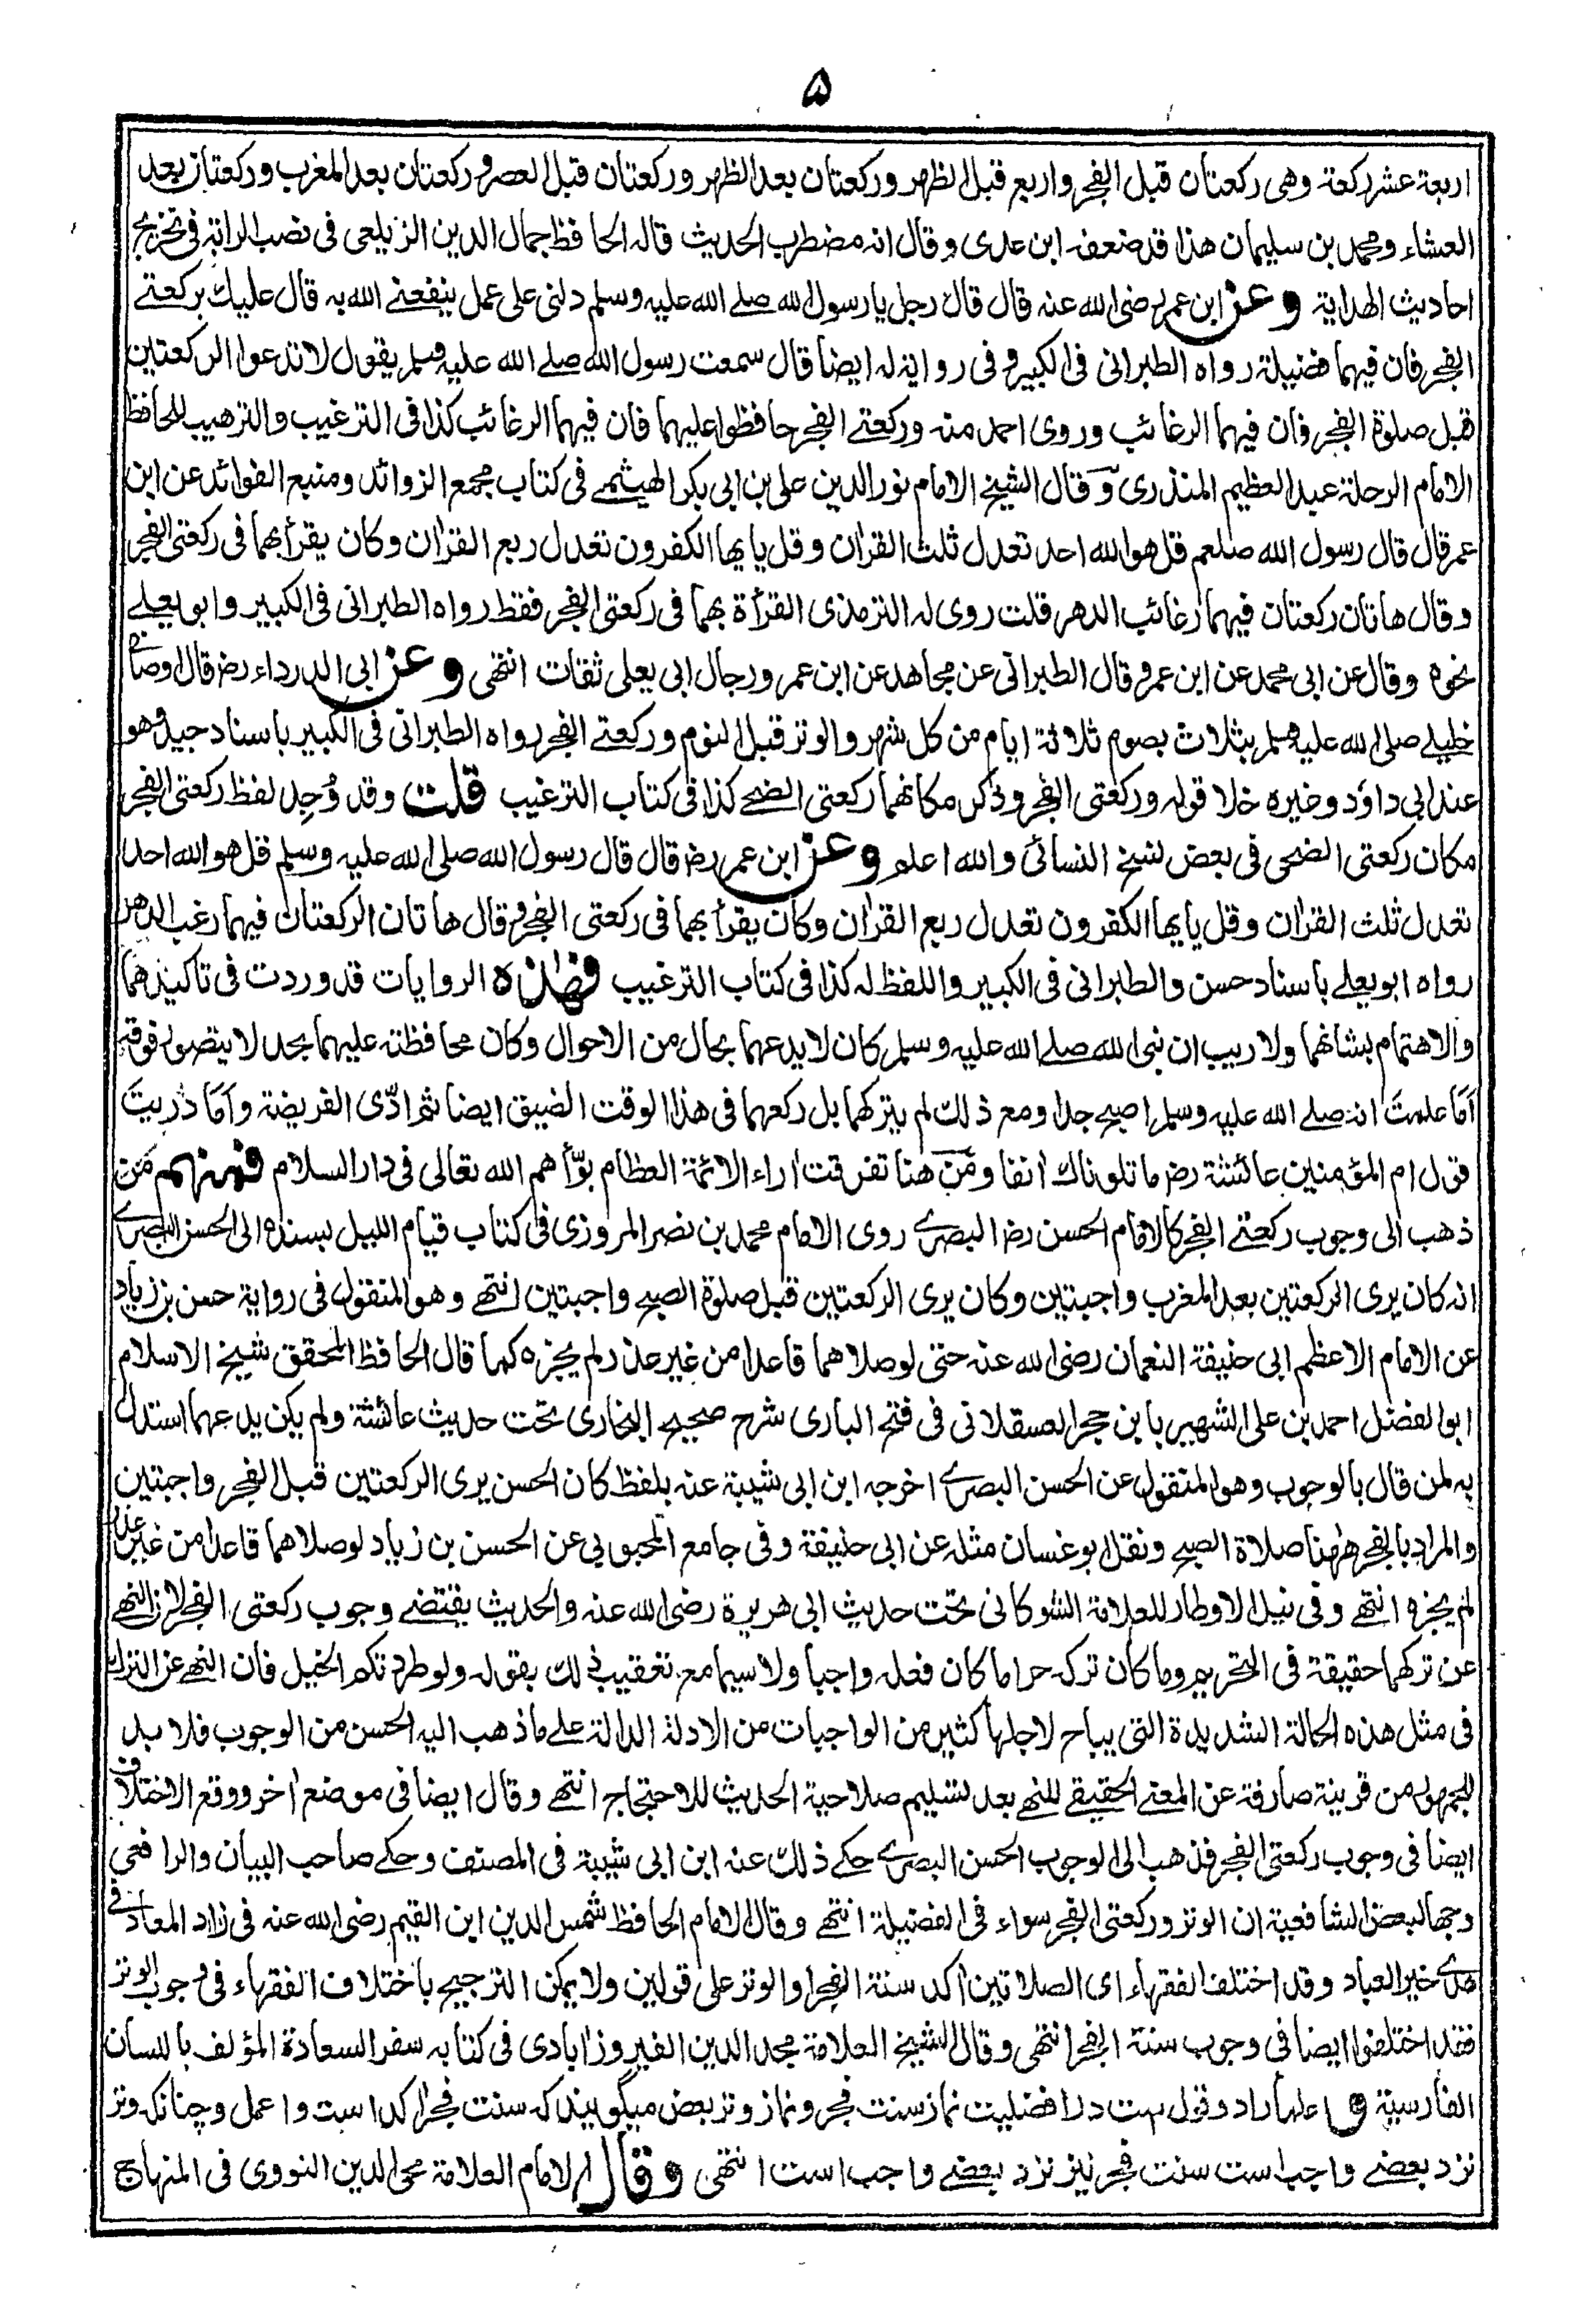 ۵
اربعة عشر ركعة وهى ركعتان قبل الفجر واربع قبل الظهر وركعتان بعد الظهر وركعتان قبل العصر وركعتان بعد المغرب وركعتان بعد
العشاء ومحمد بن سليمان هذا قد ضعفه ابن عدى وقال انه مضطرب الحديث قاله الحافظ جمال الدين الزيلعى فى نصب الراية فى تخريج
احاديث الهداية وعن ابن عمر رضى الله عنه قال قال رجل يا رسول الله صلے الله عليه وسلم دلنى على عمل ينفعنے الله به قال عليك بركعتے
الفجر فان فيهما فضيلة رواه الطبرانى فى الكبير وفى رواية له ايضا قال سمعت رسول الله صلے الله عليه وسلم يقول لا تدعوا الركعتين
قبل صلوة الفجر فان فيهما الرغائب وروى احمد منه وركعتے الفجر حافظوا عليهما فان فيهما الرغائب كذا فى الترغيب والترهيب للحافظ
الامام الرحلة عبد العظيم المنذرى وقال الشيخ الامام نور الدين على بن ابى بكر الهيثمے فى كتاب مجمع الزوائد ومنبع الفوائد عن ابن
عمر قال قال رسول الله صلعم قل هو الله احد تعدل ثلث القرأن وقل يايها الكفرون تعدل ربع القرأن وكان يقرأ بهما فى ركعتى الفجر
وقال هاتان ركعتان فيهما رغائب الدهر قلت روى له الترمذى القرأة بهما فى ركعتى الفجر فقط رواه الطبرانى فى الكبير وابو يعلے
نحوه وقال عن ابى محمد عن ابن عمر وقال الطبرانى عن مجاهد عن ابن عمر ورجال ابى يعلى ثقات انتهى وعن ابى الدرداء رض قال اوصانى
خليلے صلى الله عليه وسلم بثلاث بصوم ثلاثة ايام من كل شهر والوتر قبل النوم وركعتے الفجر رواه الطبرانى فى الكبير باسناد جيد وهو
عند ابى داود وغيره خلا قوله وركعتى الفجر وذكر مكانهما ركعتى الضحے كذا فى كتاب الترغيب قلت وقد وُجِد لفظ ركعتى الفجر
مكان ركعتى الضحى فى بعض نسخ النسائى والله اعلم وعن ابن عمر رض قال قال رسول الله صلى الله عليه وسلم قل هو الله احد
تعدل ثلث القرأن وقل يايها الكفرون تعدل ربع القرأن وكان يقرأ بهما فى ركعتى الفجر وقال هاتان الركعتان فيهما رغب الدهر
رواه ابو يعلے باسناد حسن والطبرانى فى الكبير واللفظ له كذا فى كتاب الترغيب فهٰذه الروايات قد وردت فى تاكيدهما
والاهتمام بشانهما ولا ريب ان نبى الله صلے الله عليه وسلم كان لا يدعهما بحال من الاحوال وكان محافظته عليهما بحد لا يتصور فوقه
اَمَا علمتَ انه صلے الله عليه وسلم اصبح جدا ومع ذلك لم يتركهما بل ركعهما فى هذا الوقت الضيق ايضا ثم ادّى الفريضة واَمَا دريتَ
قول ام المؤمنين عائشة رض ما تلوناك أنفا ومن هنا تفرقت أراء الائمة العظام بوّأهم الله تعالى فى دار السلام فمنهم مَن
ذهب الى وجوب ركعتے الفجر كالامام الحسن رض البصرے روى الامام محمد بن نصر المروزى فى كتاب قيام الليل بسنده الى الحسن البصرے
انه كان يرى الركعتين بعد المغرب واجبتين وكان يرى الركعتين قبل صلوة الصبح واجبتين انتهے وهو المنقول فى رواية حسن بن زياد
عن الامام الاعظم ابى حنيفة النعمان رضى الله عنه حتى لو صلاهما قاعدا من غير عذر لم يجزه كما قال الحافظ المحقق شيخ الاسلام
ابو الفضل احمد بن على الشهير بابن حجر العسقلانى فى فتح البارى شرح صحيح البخارى تحت حديث عائشة ولم يكن يدعهما استدل
به لمن قال بالوجوب وهو المنقول عن الحسن البصرے اخرجه ابن ابى شيبة عنه بلفظ كان الحسن يرى الركعتين قبل الفجر واجبتين
والمراد بالفجر هٰهنا صلاة الصبح ونقل ابو غسان مثله عن ابى حنيفة وفى جامع المحبوبى عن الحسن بن زياد لو صلاهما قاعدا من غير عذر
لم يجزه انتهے وفى نيل الاوطار للعلامة الشوكانى تحت حديث ابى هريرة رضى الله عنه والحديث يقتضے وجوب ركعتى الفجر لان النهے
عن تركهما حقيقة فى التحريم وما كان تركه حراما كان فعله واجبا ولا سيما مع تعقيب ذلك بقوله ولو طردتكم الخيل فان النهے عن الترك
فى مثل هذه الحالة الشديدة التى يباح لاجلها كثير من الواجبات من الادلة الدالة علے ما ذهب اليه الحسن من الوجوب فلا بد
للجمهور من قرينة صارفة عن المعنے الحقيقے للنهے بعد تسليم صلاحية الحديث للاحتجاج انتهے وقال ايضا فى موضع أخر ووقع الاختلاف
ايضا فى وجوب ركعتى الفجر فذهب الى الوجوب الحسن البصرے حكے ذلك عنه ابن ابى شيبة فى المصنف وحكے صاحب البيان والرافعى
وجها لبعض الشافعية ان الوتر وركعتى الفجر سواء فى الفضيلة انتهے وقال الامام الحافظ شمس الدين ابن القيم رضى الله عنه فى زاد المعاد فى
هدے خير العباد وقد اختلف الفقهاء اى الصلاتين أكد سنة الفجر او الوتر على قولين ولا يمكن الترجيح باختلاف الفقهاء فى وجوب الوتر
فقد اختلفوا ايضا فى وجوب سنة الفجر انتهى وقال الشيخ العلامة مجد الدين الفيروزأبادى فى كتابه سفر السعادة المؤلف باللسان
الفارسية وعلما را دو قول ست در افضليت نماز سنت فجر ونماز وتر بعض ميگويند كه سنت فجر أكد است و چنانكه وتر
نزد بعضے واجب است سنت فجر نيز نزد بعضے واجب است انتهى وقال الامام العلامة محى الدين النووى فى المنهاج